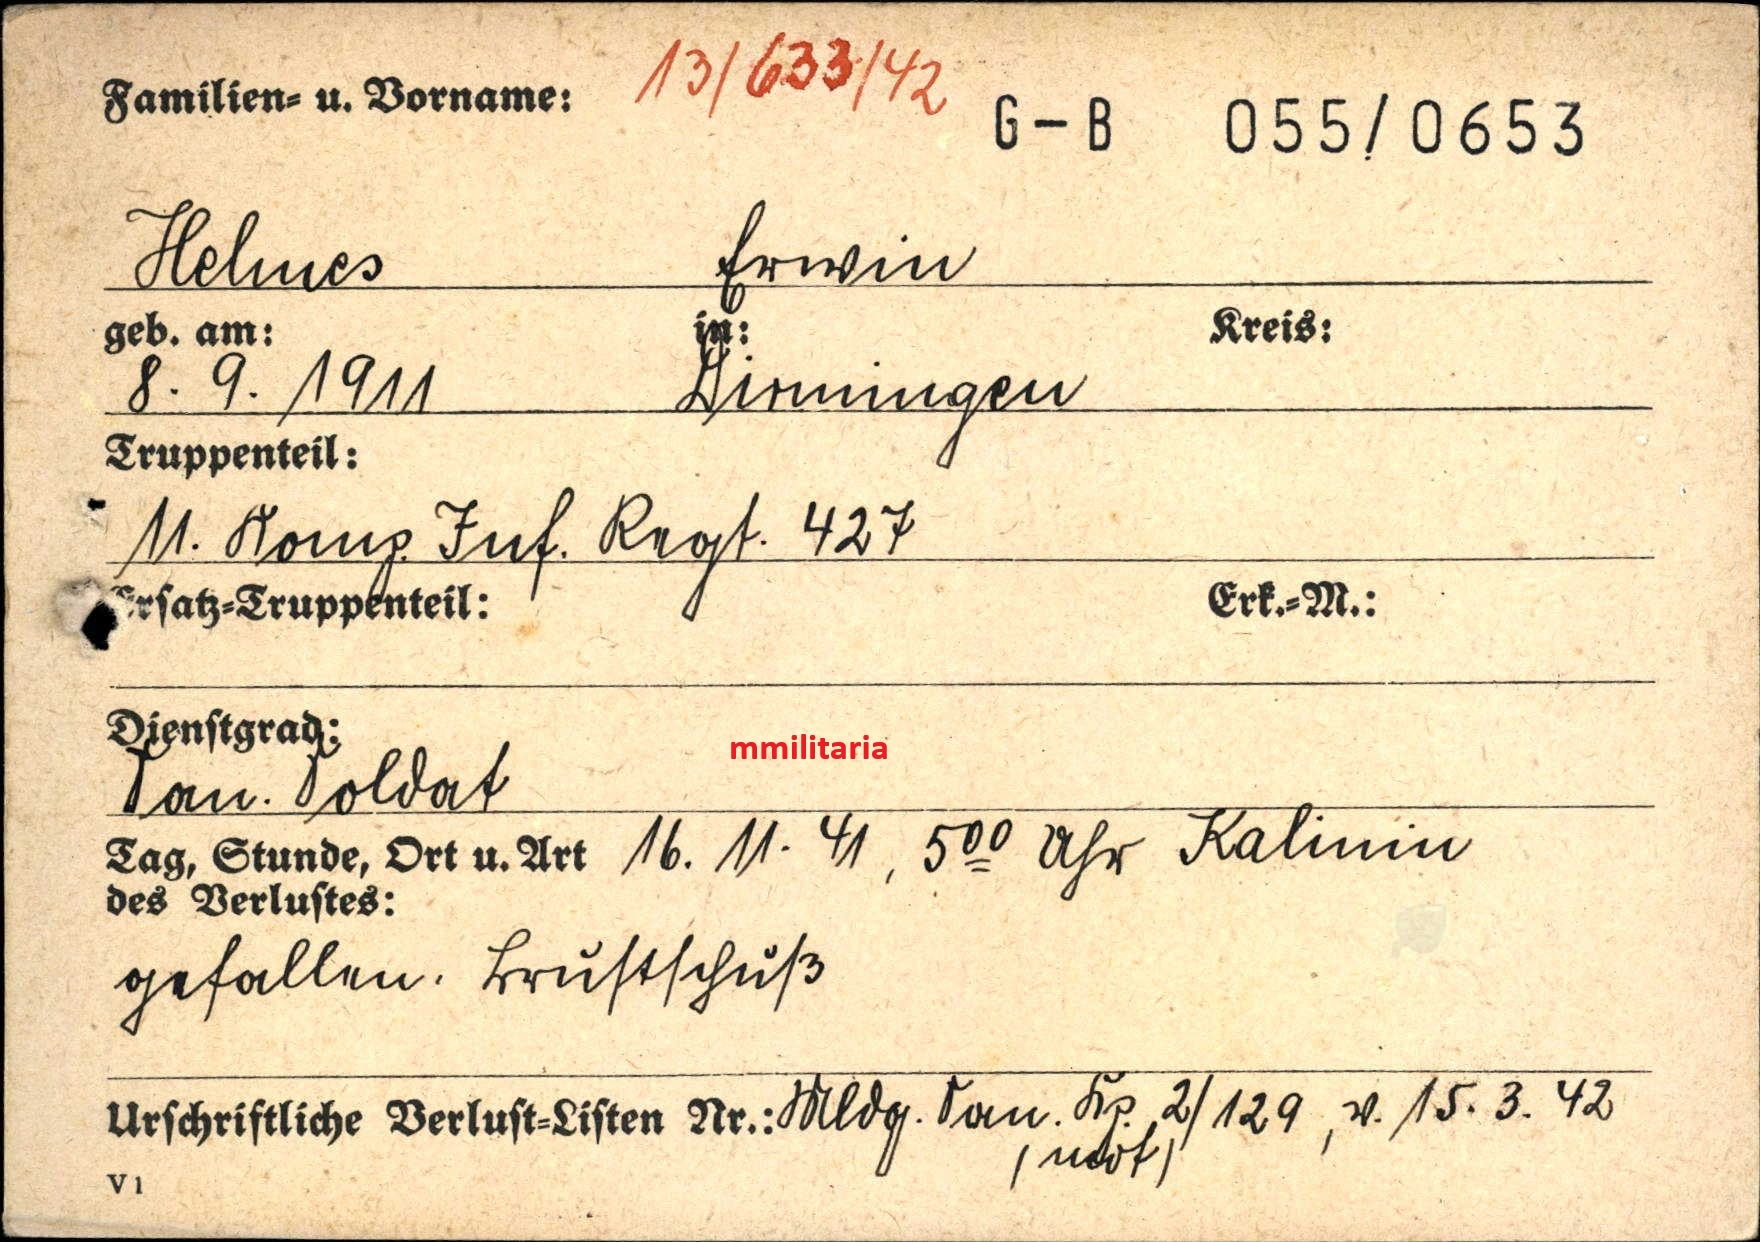 13/633/42
Familien- u. Vorname:
G-B 055/0653
Helmes Erwin
geb. am: in: Kreis:
8. 9. 1911 Dirmingen
Truppenteil:
11. Komp. Inf. Regt. 427
Ersatz-Truppenteil: Erk.-M.:
Dienstgrad:
San. Soldat
mmilitaria
Tag, Stunde, Ort u. Art 16. 11. 41, 5⁰⁰ Uhr Kalinin
des Verlustes:
gefallen. Brustschuß
Urschriftliche Verlust-Listen Nr.: Mldg. San. Kp. 2/129, v. 15. 3. 42
(mot)
V 1